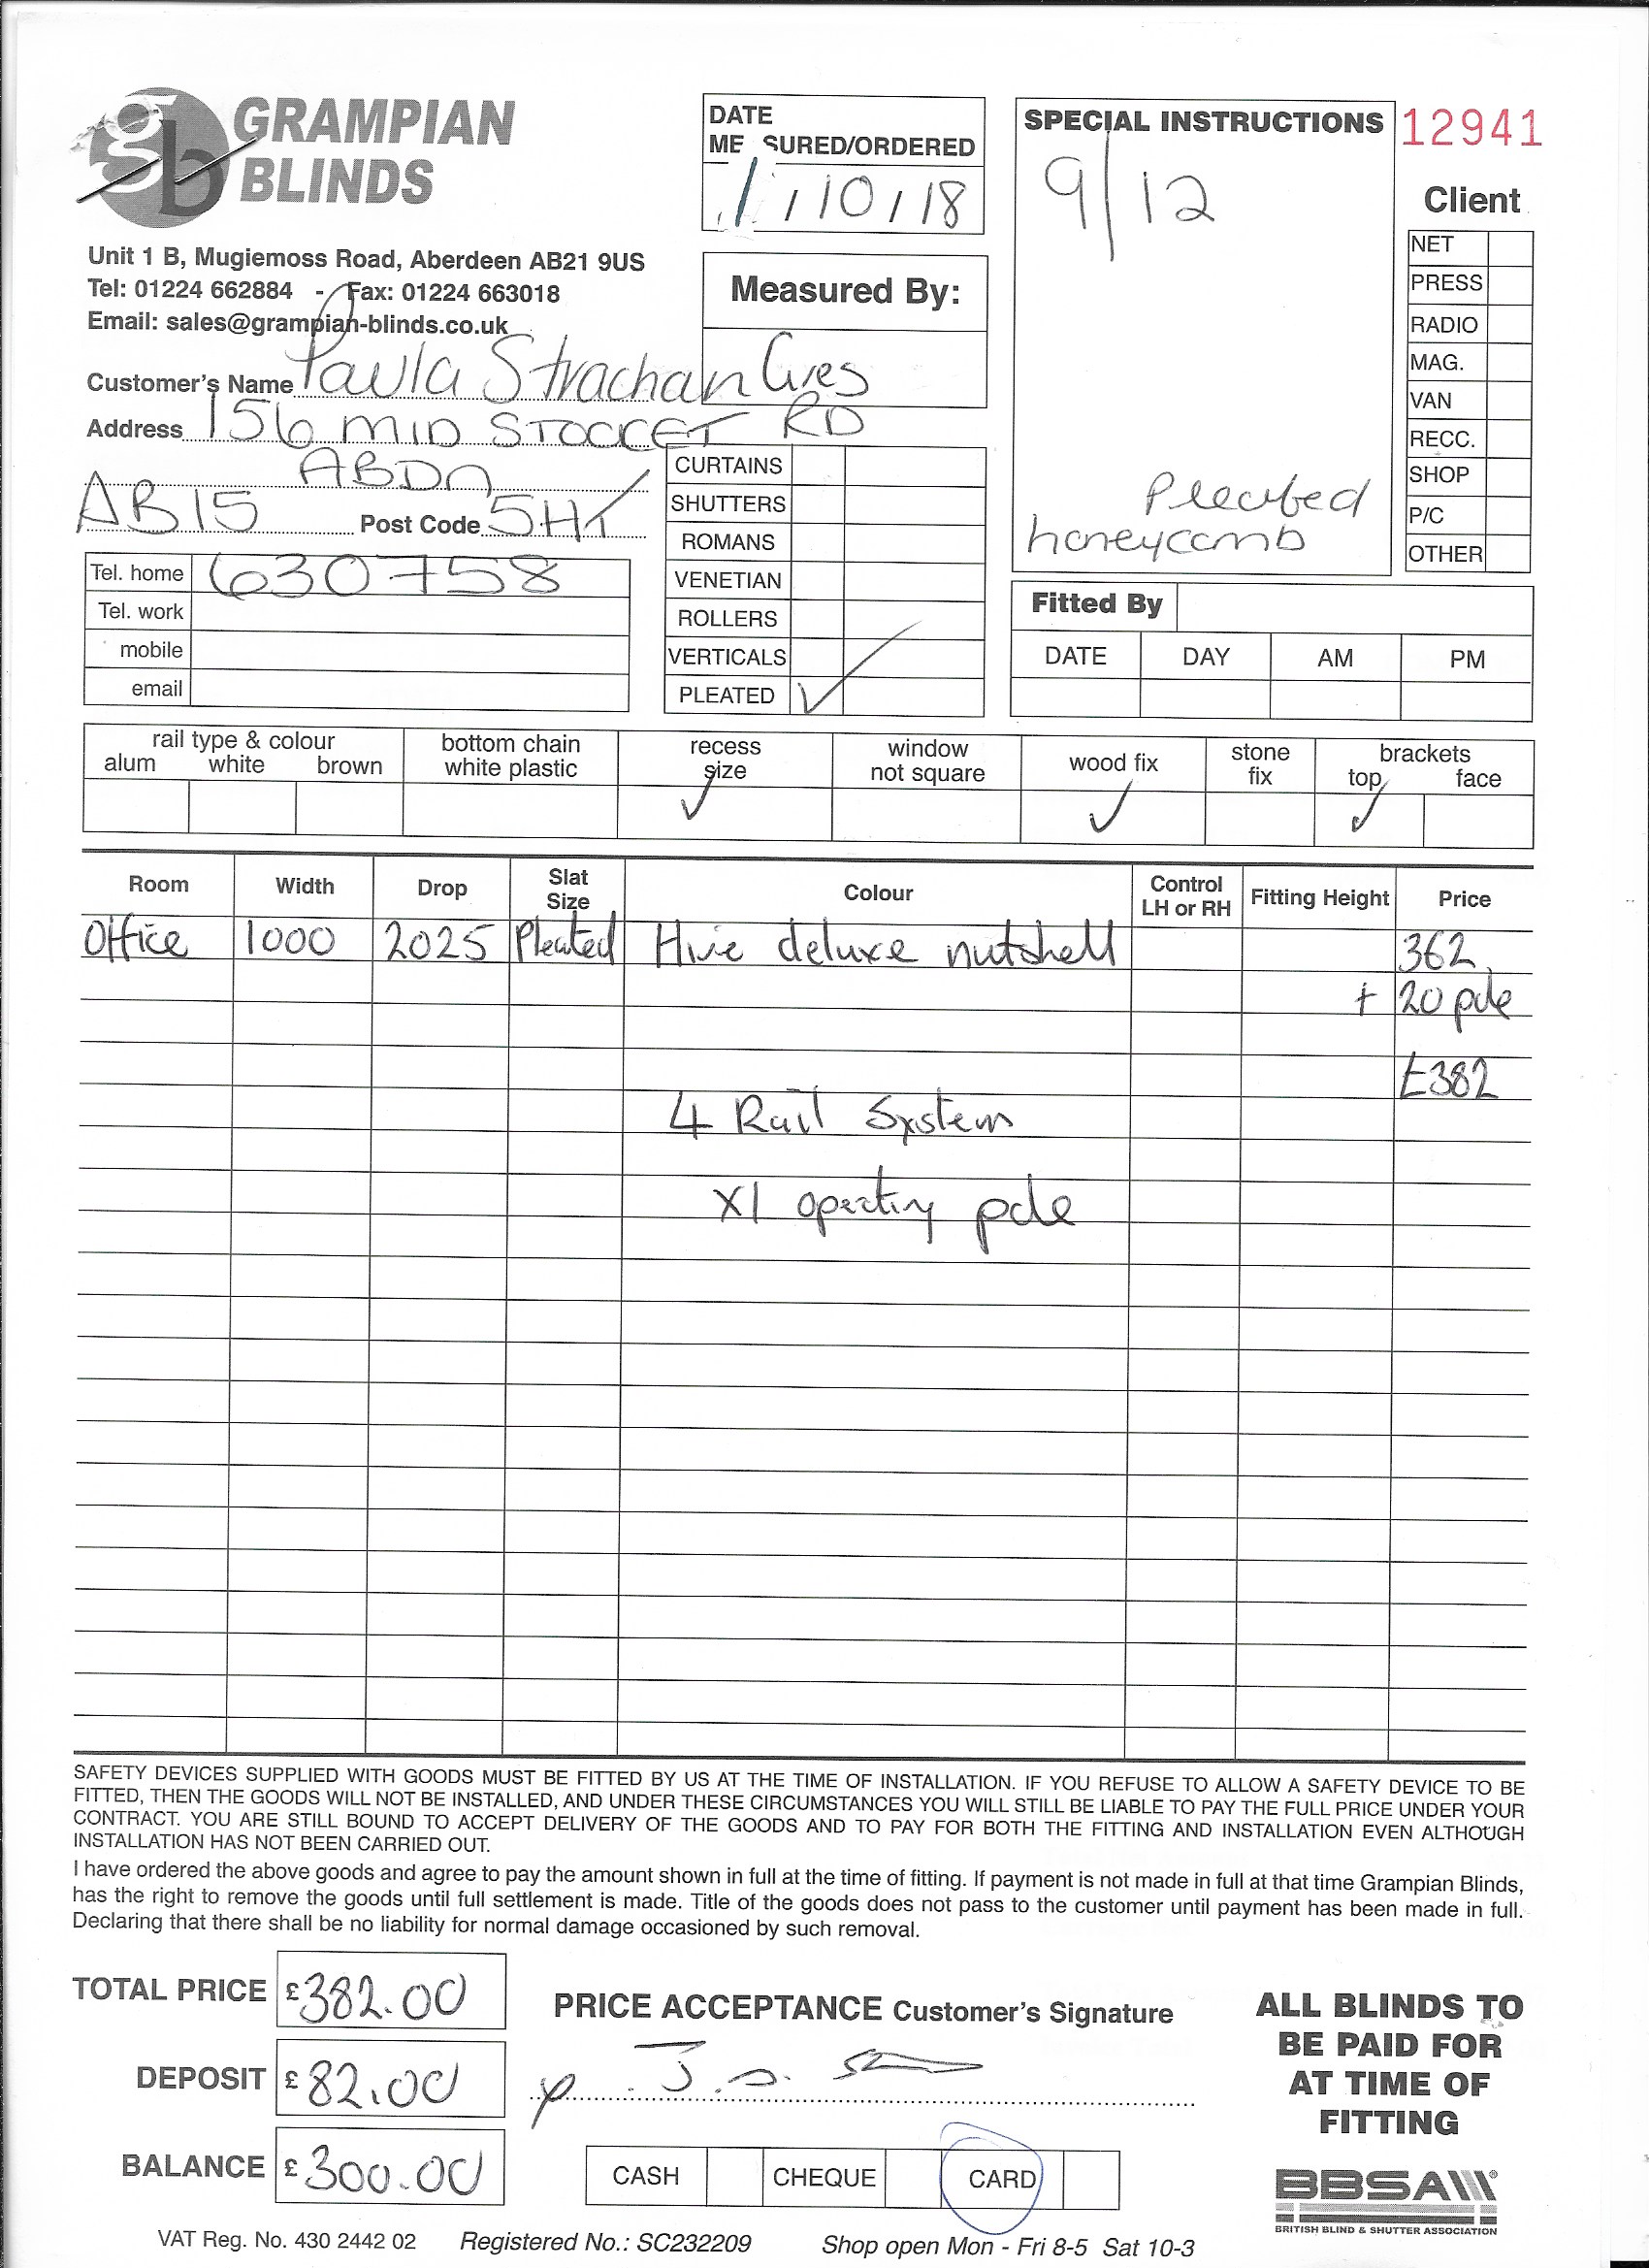 gb GRAMPIAN
BLINDS
Unit 1 B, Mugiemoss Road, Aberdeen AB21 9US
Tel: 01224 662884 - Fax: 01224 663018
Email: sales@grampian-blinds.co.uk
Customer's Name Paula Strachan
Address 156 MID STOCKET RD
ABDN
AB15 Post Code 5HT
Tel. home 630758
Tel. work
mobile
email
DATE
ME SURED/ORDERED
/10/18
Measured By:
CURTAINS
SHUTTERS
ROMANS
VENETIAN
ROLLERS
VERTICALS
PLEATED ✓
SPECIAL INSTRUCTIONS
9/12
Pleated
honeycomb
12941
Client
NET
PRESS
RADIO
MAG.
VAN
RECC.
SHOP
P/C
OTHER
Fitted By
DATE DAY AM PM
rail type & colour bottom chain recess window wood fix stone brackets
alum white brown white plastic size not square fix top face
✓ ✓ ✓
Room Width Drop Slat Size Colour Control LH or RH Fitting Height Price
Office 1000 2025 Pleated Hive deluxe nutshell 362
+ 20 pole
£382
4 Rail System
X1 operating pole
SAFETY DEVICES SUPPLIED WITH GOODS MUST BE FITTED BY US AT THE TIME OF INSTALLATION. IF YOU REFUSE TO ALLOW A SAFETY DEVICE TO BE
FITTED, THEN THE GOODS WILL NOT BE INSTALLED, AND UNDER THESE CIRCUMSTANCES YOU WILL STILL BE LIABLE TO PAY THE FULL PRICE UNDER YOUR
CONTRACT. YOU ARE STILL BOUND TO ACCEPT DELIVERY OF THE GOODS AND TO PAY FOR BOTH THE FITTING AND INSTALLATION EVEN ALTHOUGH
INSTALLATION HAS NOT BEEN CARRIED OUT.
I have ordered the above goods and agree to pay the amount shown in full at the time of fitting. If payment is not made in full at that time Grampian Blinds,
has the right to remove the goods until full settlement is made. Title of the goods does not pass to the customer until payment has been made in full.
Declaring that there shall be no liability for normal damage occasioned by such removal.
TOTAL PRICE £382.00
DEPOSIT £82.00
BALANCE £300.00
PRICE ACCEPTANCE Customer's Signature
CASH CHEQUE CARD
ALL BLINDS TO
BE PAID FOR
AT TIME OF
FITTING
BBSA
BRITISH BLIND & SHUTTER ASSOCIATION
VAT Reg. No. 430 2442 02 Registered No.: SC232209 Shop open Mon - Fri 8-5 Sat 10-3